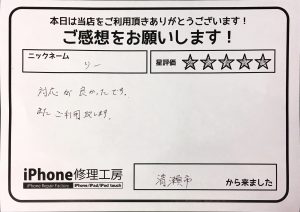 本日は当店をご利用頂きありがとうございます！
ご感想をお願いします！
ニックネーム
リー
星評価
★★★★★
対応が良かったです。
またご利用致します。
iPhone修理工房
iPhone Repair Factory
iPhone/iPad/iPod touch
清瀬市
から来ました